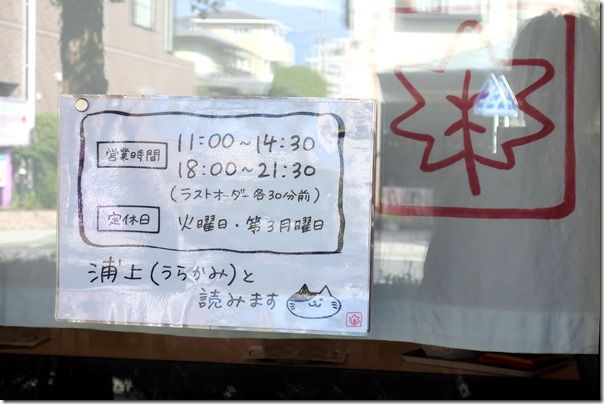 営業時間 11:00～14:30
18:00～21:30
(ラストオーダー各30分前)
定休日 火曜日・第3月曜日
浦上(うらかみ)と
読みます